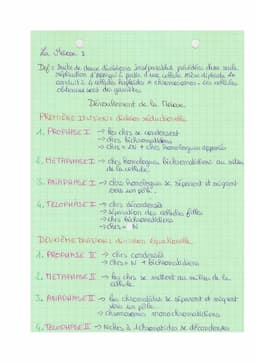 La Méiose :
Def : Suite de deux divisions inséparables précédées d'une seule
réplication d' à partir d'une cellule mère diploïde
conduit à 4 cellules haploïdes chromosomes. Les cellules
obtenues sont des gamètes.
Déroulement de la Méiose.
PREMIÈRE DIVISION : division réductionnelle
1. PROPHASE I → les chrs se condensent
→ chrs bichromatidiens
→ chrs = 2N + chrs homologues appariés
2. METAPHASE I → chrs homologues bichromatidiens au milieu
de la cellule.
3. ANAPHASE I → chrs homologues se séparent et migrent
vers un pôle.
4. TELOPHASE I → chrs décondensés
→ séparation des cellules filles
→ chrs bichromatidiens
→ chrs = N
DEUXIÈME DIVISION : division équationnelle
1. PROPHASE II → chrs condensés
→ chrs = N + bichromatidiens
2. METAPHASE II → les chrs se mettent au milieu de la
cellule.
3. ANAPHASE II → les chromatides se séparent et migrent
vers un pôle
→ chromosomes monochromatidiens
4. TELOPHASE II → N chrs à 1 chromatides se décondensés